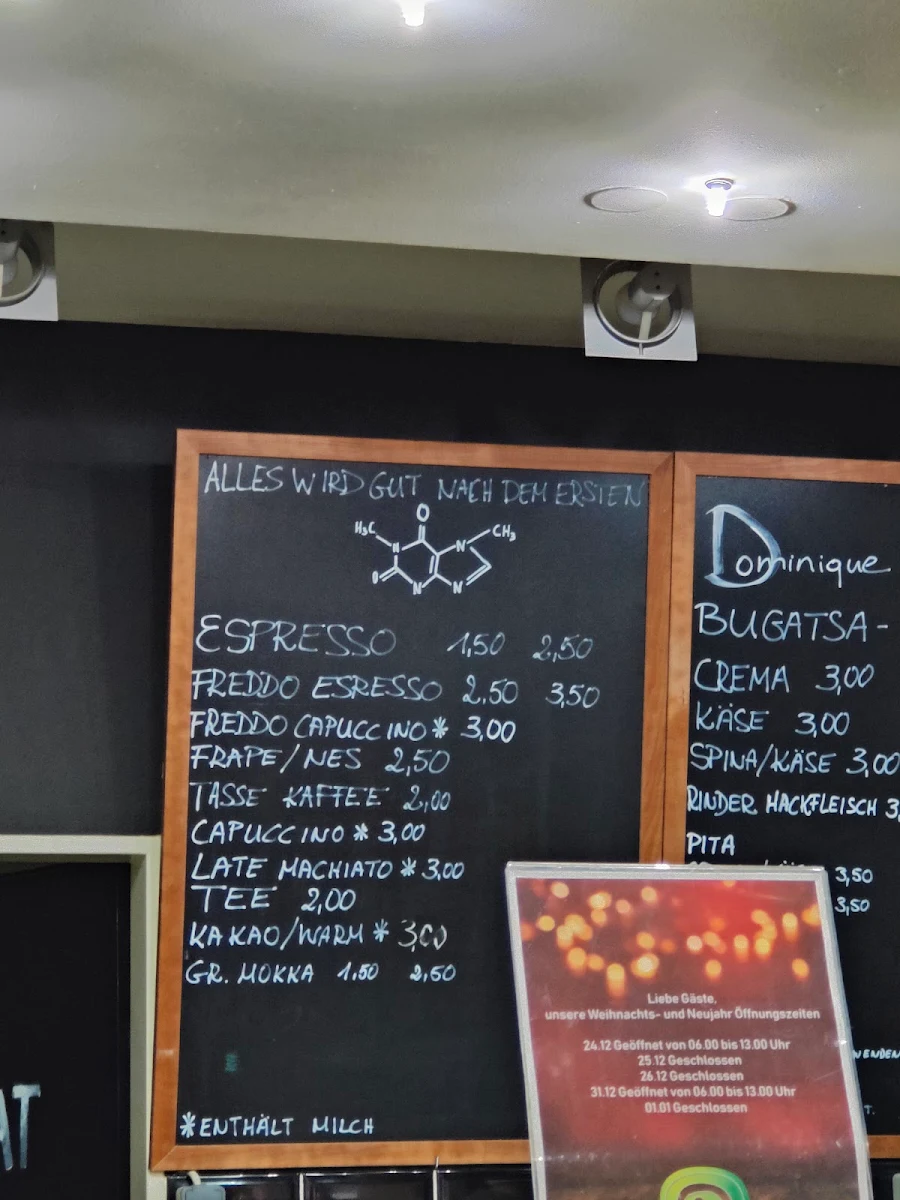 ALLES WIRD GUT NACH DEM ERSTEN
H₃C O CH₃
N N
O N N
ESPRESSO 1,50 2,50
FREDDO ESRESSO 2.50 3,50
FREDDO CAPUCCINO* 3,00
FRAPE/NES 2,50
TASSE KAFFEE 2,00
CAPUCCINO* 3,00
LATE MACHIATO* 3,00
TEE 2,00
KAKAO/WARM* 3,00
GR. MOKKA 1.50 2,50
*ENTHÄLT MILCH
Dominique
BUGATSA-
CREMA 3,00
KÄSE 3,00
SPINA/KÄSE 3,00
RINDER HACKFLEISCH 3,
PITA
3,50
3,50
Liebe Gäste,
unsere Weihnachts- und Neujahr Öffnungszeiten
24.12 Geöffnet von 06.00 bis 13.00 Uhr
25.12 Geschlossen
26.12 Geschlossen
31.12 Geöffnet von 06.00 bis 13.00 Uhr
01.01 Geschlossen
AT